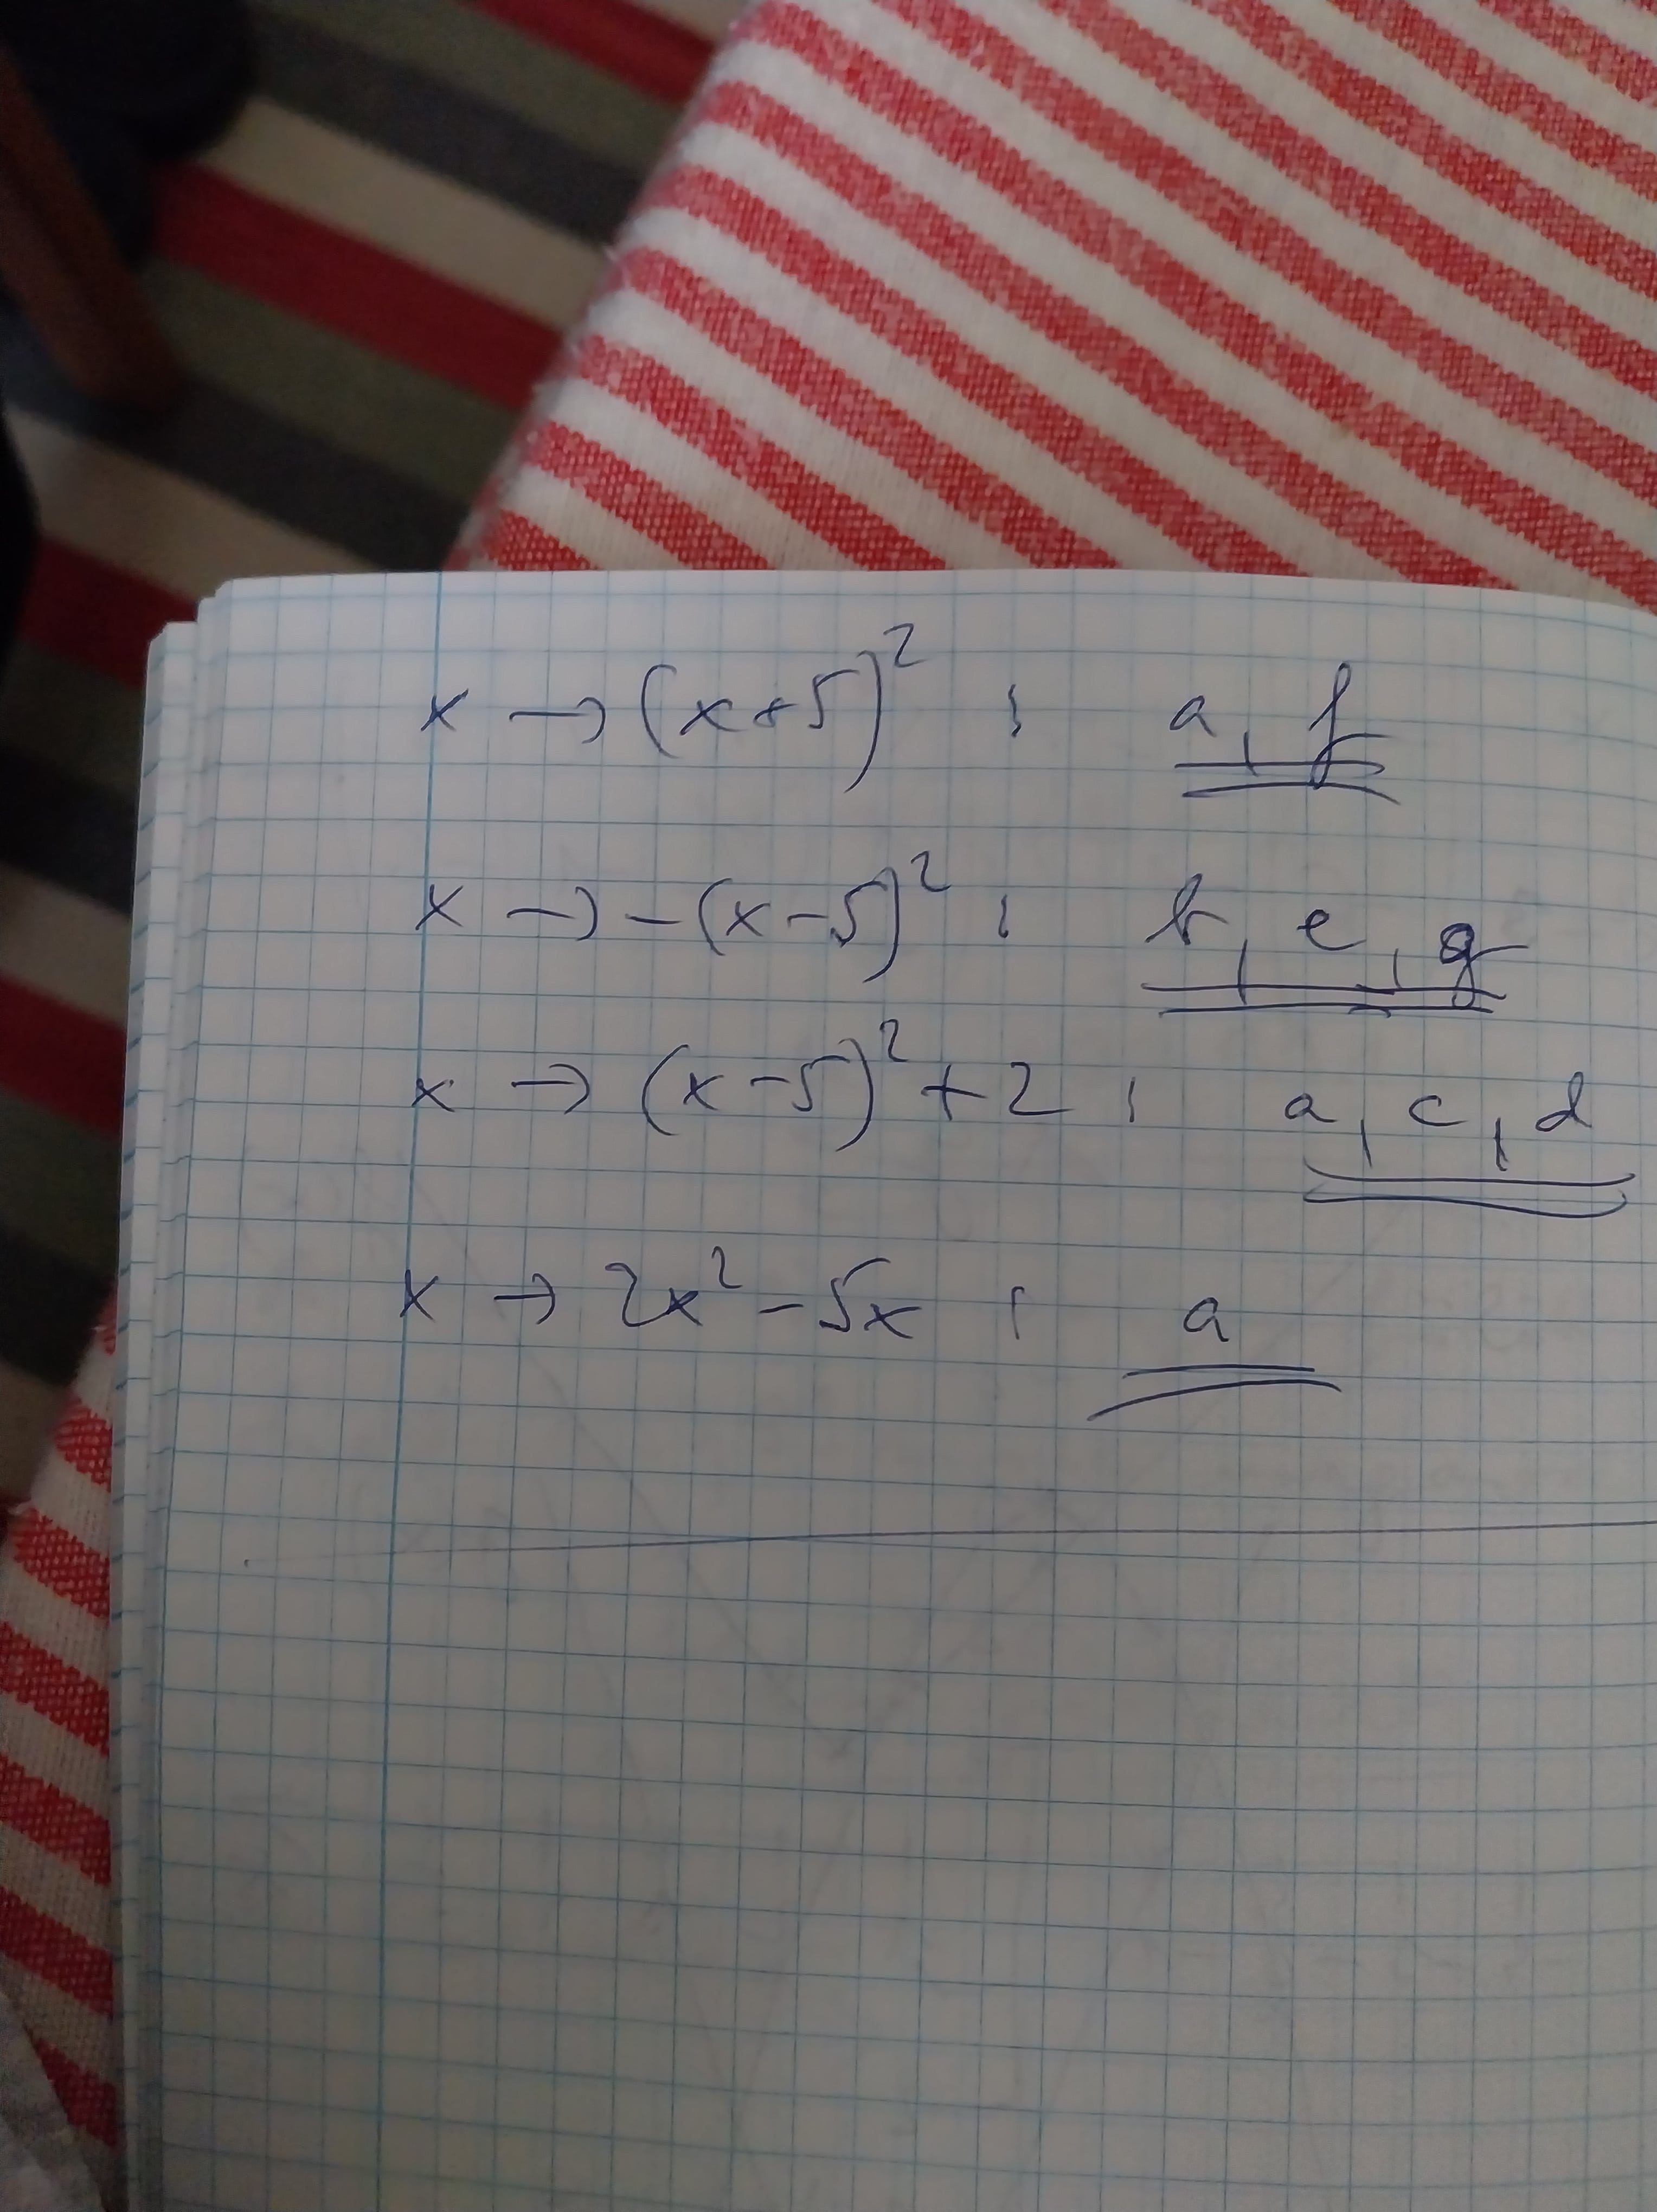 x → (x+5)² : a, f
x → -(x-5)² : b, e, g
x → (x-5)² + 2 : a, c, d
x → 2x² - 5x : a